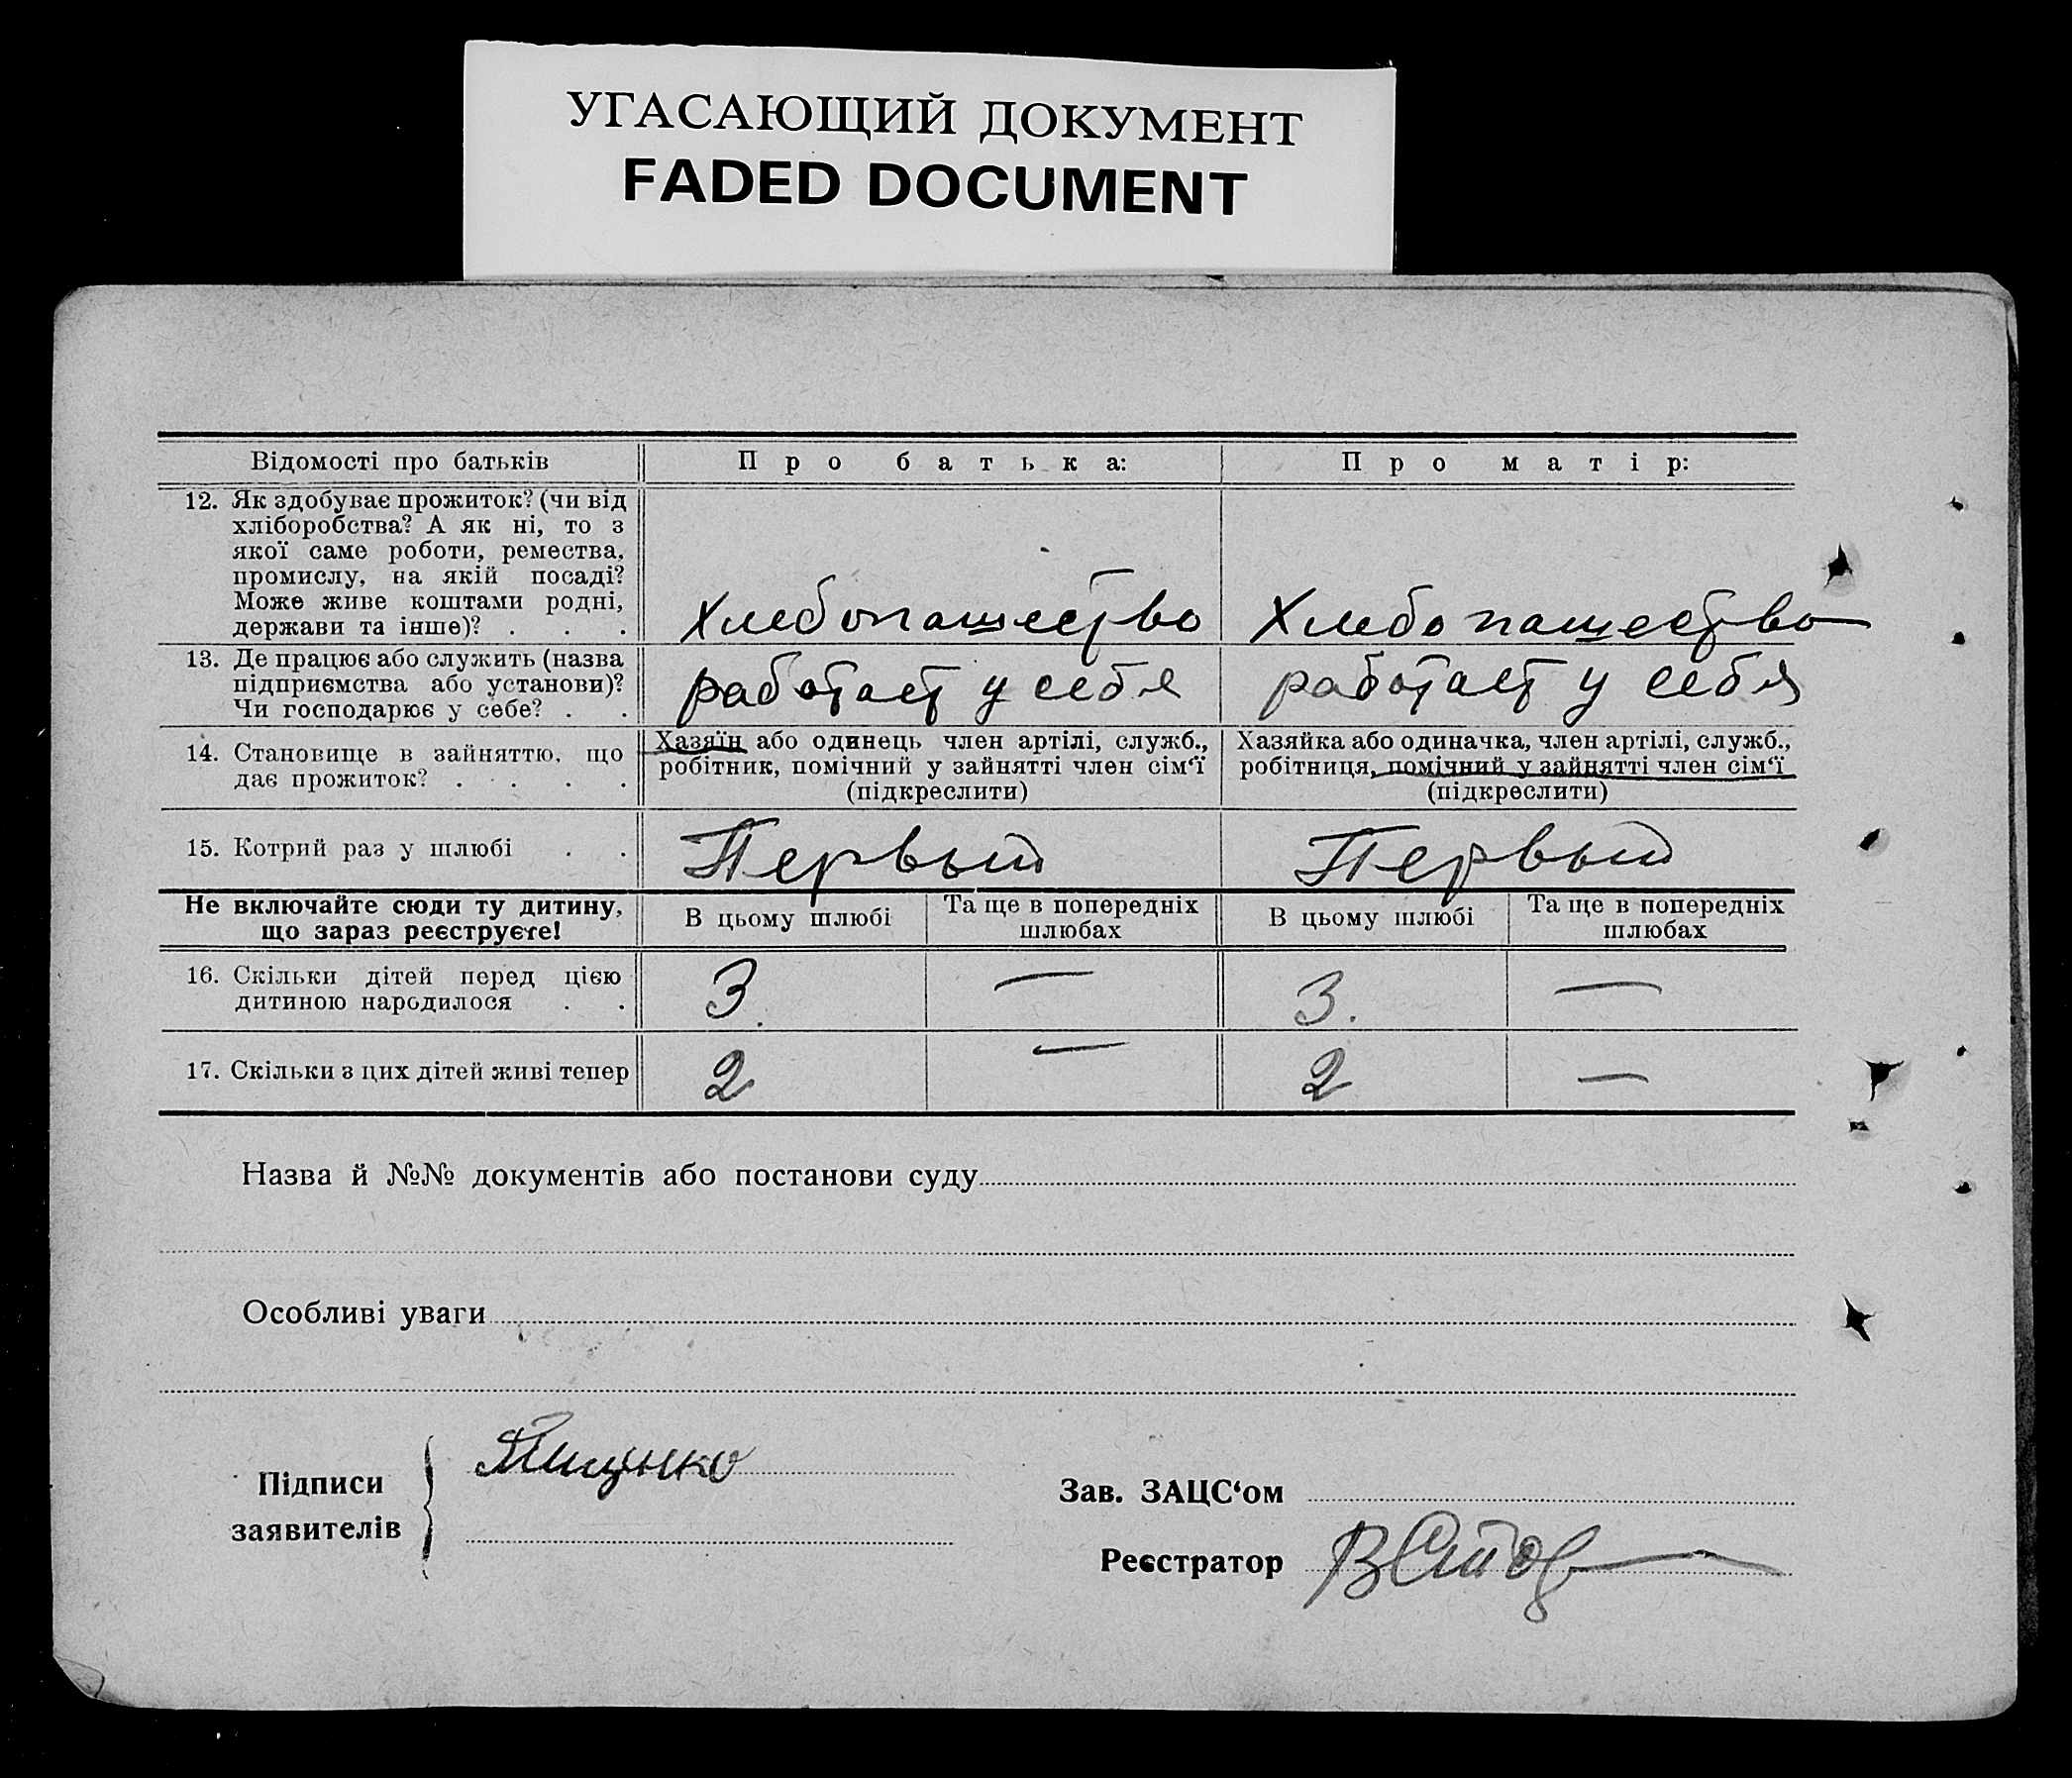 УГАСАЮЩИЙ ДОКУМЕНТ
FADED DOCUMENT
Відомості про батьків
Про батька:
Про матір:
12. Як здобуває прожиток? (чи від
хліборобства? А як ні, то з
якої саме роботи, ремества,
промислу, на якій посаді?
Може живе коштами родні,
держави та інше)? . . .
Хлебопашество
Хлебопашество
13. Де працює або служить (назва
підприємства або установи)?
Чи господарює у себе? . .
работает у себя
работает у себя
14. Становище в зайняттю, що
дає прожиток? . . . .
Хазяїн або одинець член артілі, служб.,
робітник, помічний у зайнятті член сім‘ї
(підкреслити)
Хазяйка або одиначка, член артілі, служб.,
робітниця, помічний у зайнятті член сім‘ї
(підкреслити)
15. Котрий раз у шлюбі . .
Первый
Первый
Не включайте сюди ту дитину,
що зараз реєструєте!
В цьому шлюбі
Та ще в попередніх
шлюбах
В цьому шлюбі
Та ще в попередніх
шлюбах
16. Скільки дітей перед цією
дитиною народилося . .
3.
—
3.
—
17. Скільки з цих дітей живі тепер
2
—
2
—
Назва й №№ документів або постанови суду
Особливі уваги
Підписи
заявителів
Зав. ЗАЦС‘ом
Реєстратор